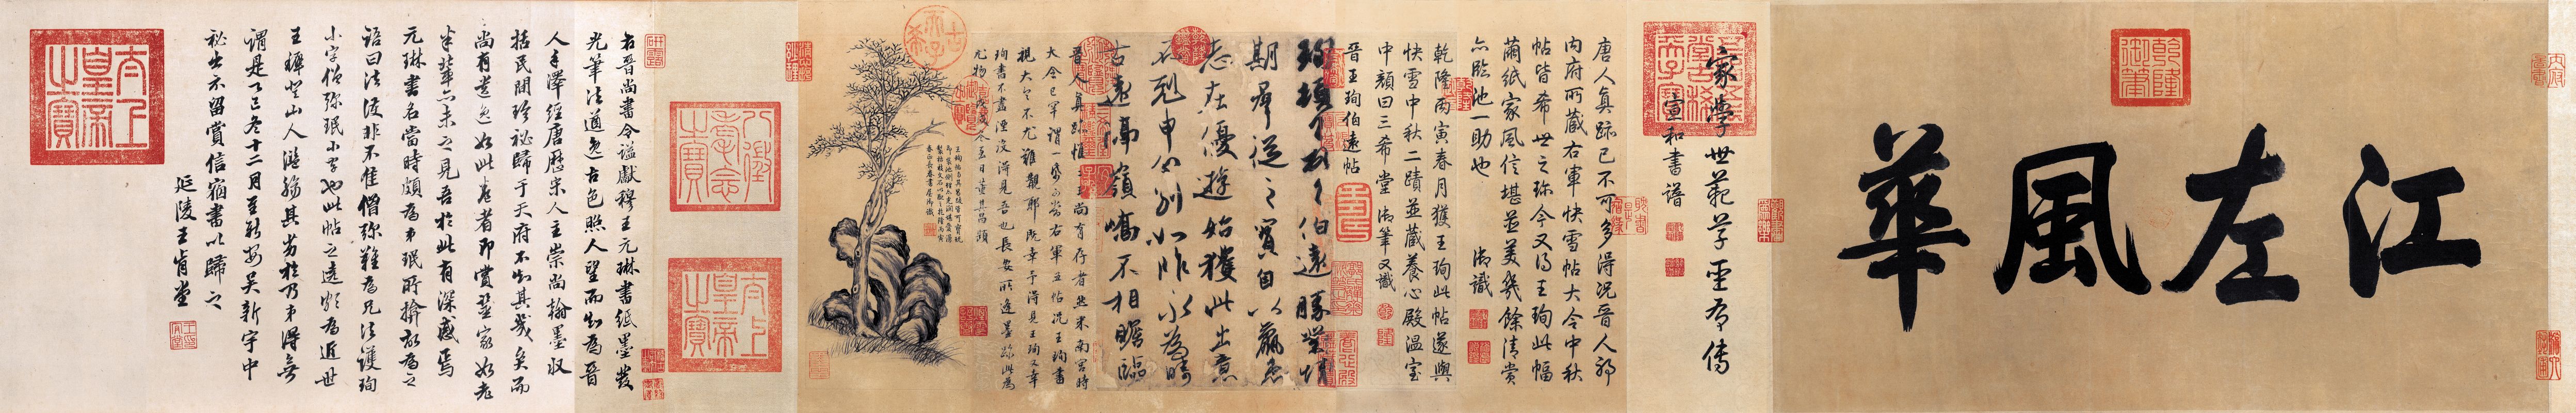 江左風華
乾隆御筆
家學世範草聖有傳
宣和書譜
唐人真跡已不可多得況晉人耶
內府所藏右軍快雪帖大令中秋
帖皆希世之珍今又得王珣此幅
繭紙家風信堪並美幾餘清賞
亦臨池一助也 御識
乾隆丙寅春月獲王珣此帖遂與
快雪中秋二蹟並藏養心殿溫室
中顏曰三希堂 御筆又識
晉王珣伯遠帖
珣頓首頓首伯遠勝業情
期群從之寶自以羸患
志在優遊始獲此出意
不剋申分別如昨永為疇
古遠隔嶺嶠不相瞻臨
晉人真跡惟二王尚有存者然米南宮時
大令已罕謂一紙可當右軍五帖況王珣書
視大令不尤難覯耶既幸予得見王珣又幸
珣書不盡湮沒得見吾也長安所逢墨跡此為
尤物戊戌冬至日董其昌題
王珣帖與其昌跋皆可寶玩
古稀天子
八徵耄念之寶
太上皇帝之寶
右晉尚書令謚獻穆王元琳書紙墨發
光筆法遒逸古色照人望而知為晉
人手澤經唐歷宋人主崇尚翰墨收
括民間珍秘歸于天府不知其幾矣而
尚有遺逸如此卷者即賞鑒家如老
米輩亦未之見吾於此有深感焉
元琳書名當時頗為弟珉所掩故為之
語曰法護非不佳僧彌難為兄法護珣
小字僧彌珉小字也此帖之遠頗為近世
王穉登山人遊揚其芳於乃弟得無
謂是乎己冬十二月至新安吳新宇中
秘出示留賞信宿書以歸之
延陵王肯堂
太上皇帝之寶